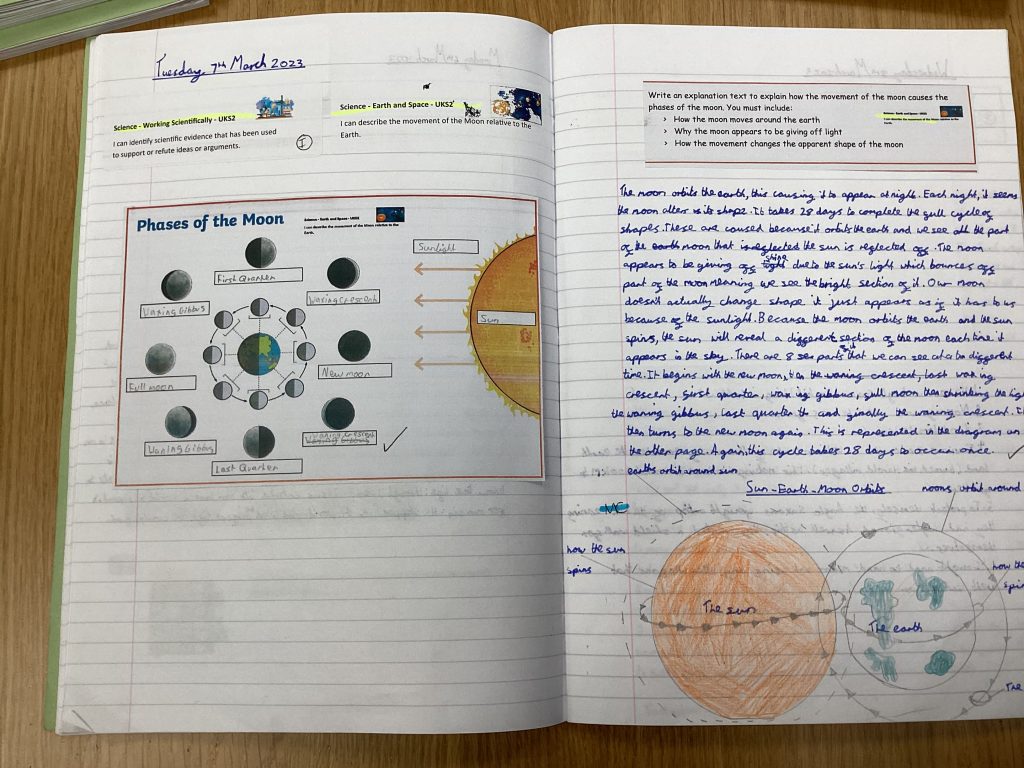 Tuesday, 7th March 2023
Science - Working Scientifically - UKS2
I can identify scientific evidence that has been used
to support or refute ideas or arguments.
I
Science - Earth and Space - UKS2
I can describe the movement of the Moon relative to the
Earth.
Phases of the Moon
Science - Earth and Space - UKS2
I can describe the movement of the Moon relative to the
Earth.
Sunlight
First Quarter
Waxing Crescent
Waxing Gibbus
Sun
Full moon
New moon
Waning Gibbus
Wanning Crescent
Last Quarter
Write an explanation text to explain how the movement of the moon causes the
phases of the moon. You must include:
> How the moon moves around the earth
> Why the moon appears to be giving off light
> How the movement changes the apparent shape of the moon
Science - Earth and Space - UKS2
I can describe the movement of the Moon relative to the
Earth.
The moon orbits the earth, this causing it to appear at night. Each night, it seems
the moon alters its shape. It takes 28 days to complete the full cycle of
shapes. These are caused because it orbits the earth and we see all the part
of the earth moon that is reflected the sun is reflected off. The moon
appears to be giving off shine due to the sun's light which bounces off
part of the moon meaning we see the bright section of it. Our moon
doesn't actually change shape it just appears as if it has to us
because of the sunlight. Because the moon orbits the earth and the sun
spins, the sun will reveal a different section of the moon each time it
appears in the sky. There are 8 parts of it that we can see at a different
time. It begins with the new moon, then the waxing crescent, last waxing
crescent, first quarter, waxing gibbus, full moon then shrinking the
the waning gibbus, last quarter and finally the waning crescent. It
then turns to the new moon again. This is represented in the diagram on
the other page. Again, this cycle takes 28 days to occur once.
earths orbit around sun
Sun-Earth-Moon Orbits
moons orbit around
MC
how the sun
spins
The sun
The earth
how the
The